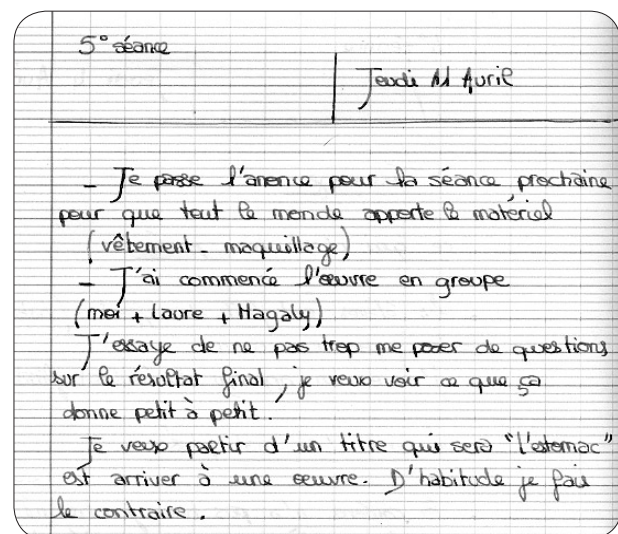 5° séance
Jeudi 11 Avril
- Je passe l'anonce pour la séance prochaine
pour que tout le monde apporte le matériel
(vêtement - maquillage)
- J'ai commencé l'œuvre en groupe
(moi + Laure + Magaly)
J'essaye de ne pas trop me poser de questions
sur le résultat final, je veux voir ce que ça
donne petit à petit.
Je veux partir d'un titre qui sera "l'estomac"
est arriver à une œuvre. D'habitude je fais
le contraire.